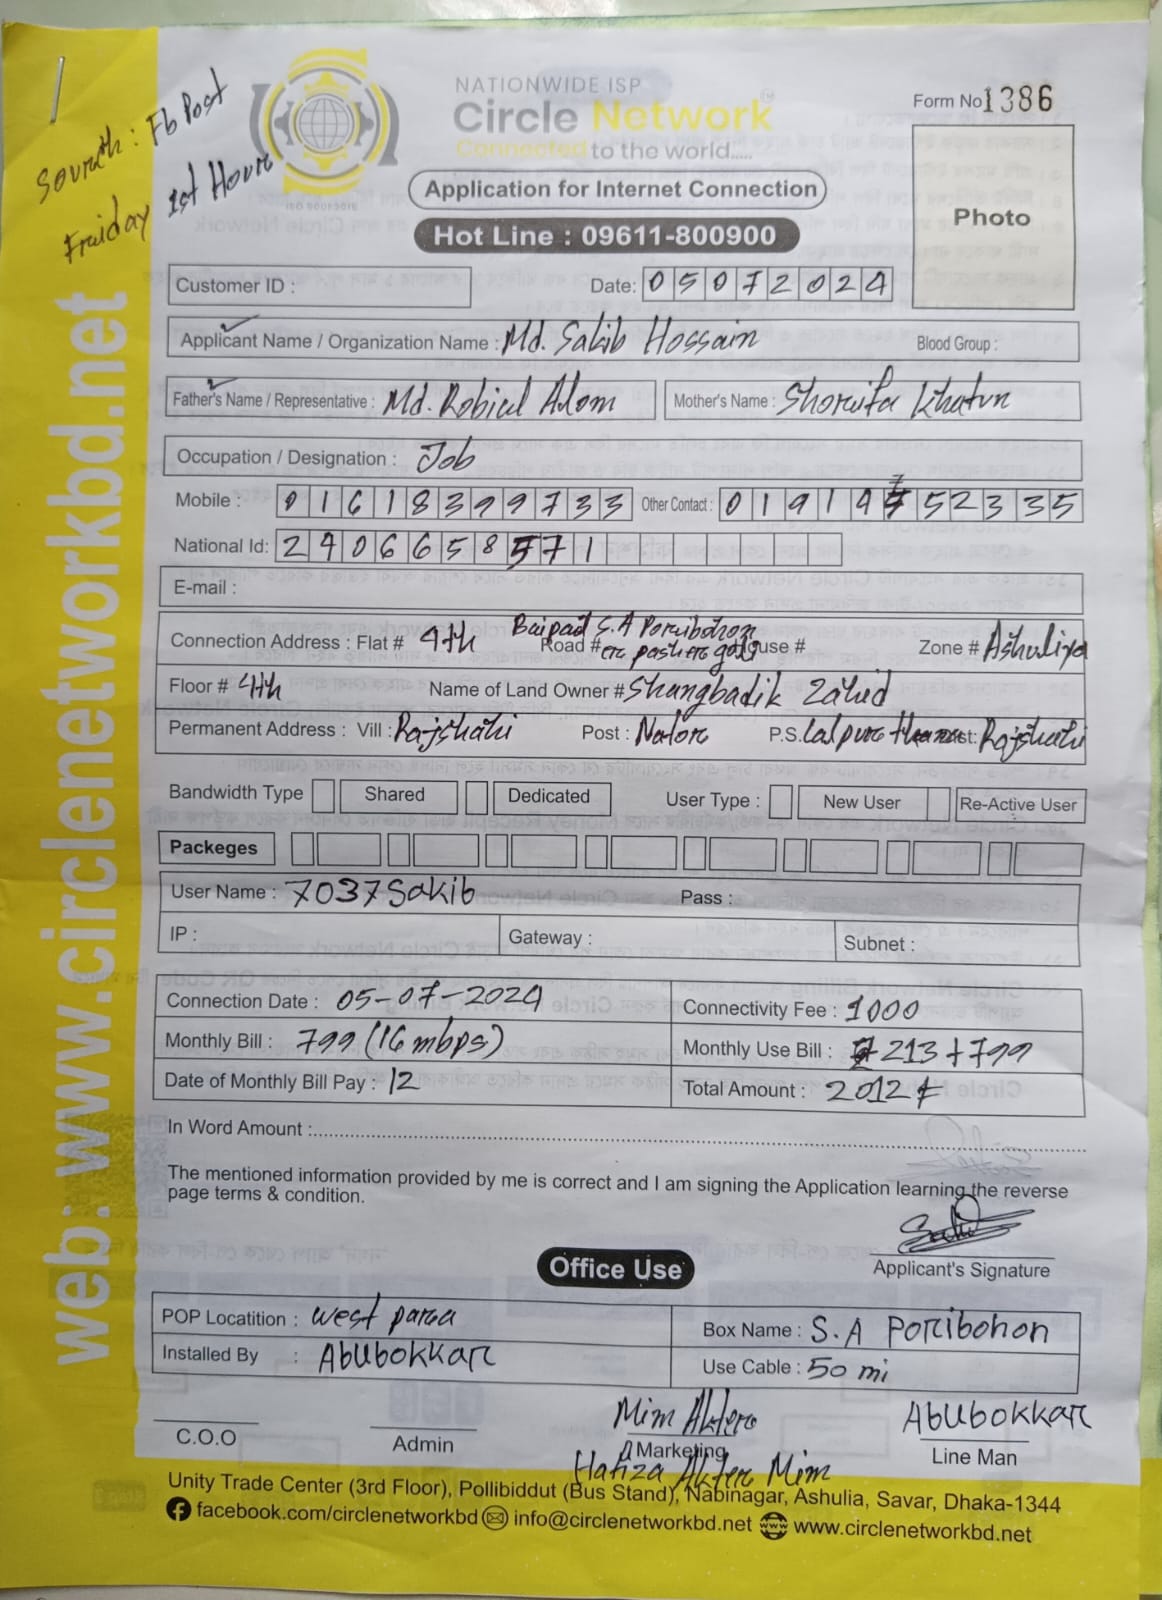 Sourth : Fb Post
Fruiday 1st Hour
NATIONWIDE ISP
Circle Network
Connected to the world.....
ISO 9001:2015
Form No 1386
Photo
Application for Internet Connection
Hot Line : 09611-800900
Customer ID :
Date: 05072024
Applicant Name / Organization Name : Md. Sakib Hossain Blood Group :
Father's Name / Representative : Md. Robiul Alom Mother's Name : Shorifa Khatun
Occupation / Designation : Job
Mobile : 01618399733 Other Contact : 01914752335
National Id: 2406658571
E-mail :
Connection Address : Flat # 4th Road # Baipail S.A Poribohon er pasher goli House # Zone # Ashuliya
Floor # 4th Name of Land Owner # Shangbadik Zahid
Permanent Address : Vill : Rajshahi Post : Nator P.S. Lalpur thana Dist: Rajshahi
Bandwidth Type Shared Dedicated User Type : New User Re-Active User
Packeges
User Name : 7037Sakib Pass :
IP : Gateway : Subnet :
Connection Date : 05-07-2024 Connectivity Fee : 1000
Monthly Bill : 799 (16 mbps) Monthly Use Bill : 213+799
Date of Monthly Bill Pay : 12 Total Amount : 2012
In Word Amount :
The mentioned information provided by me is correct and I am signing the Application learning the reverse
page terms & condition.
Applicant's Signature
Office Use
POP Locatition : west para Box Name : S.A Poribohon
Installed By : Abubokkar Use Cable : 50 mi
Mim Akter Abubokkar
C.O.O Admin Marketing Line Man
Hafiza Akter Mim
Unity Trade Center (3rd Floor), Pollibiddut (Bus Stand), Nabinagar, Ashulia, Savar, Dhaka-1344
facebook.com/circlenetworkbd info@circlenetworkbd.net www.circlenetworkbd.net
web: www.circlenetworkbd.net